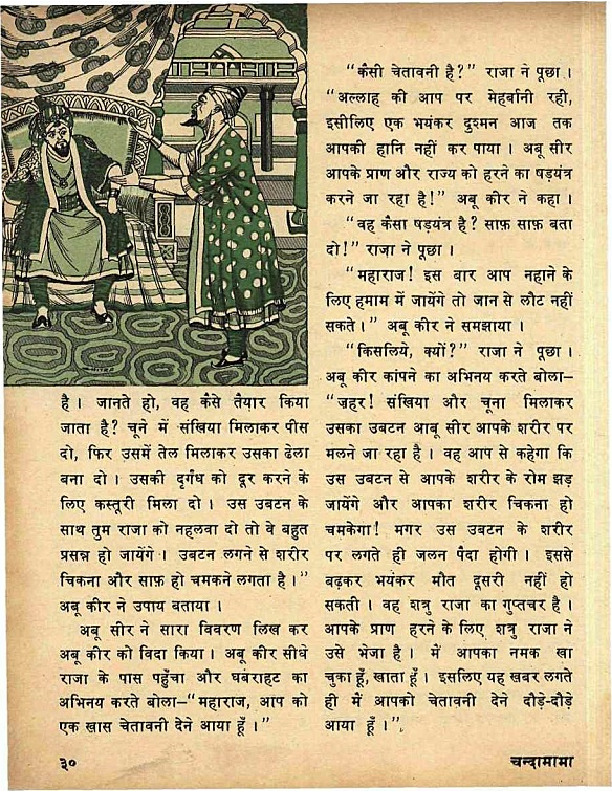 है। जानते हो, वह कैसे तैयार किया
जाता है? चूने में संखिया मिलाकर पीस
दो, फिर उसमें तेल मिलाकर उसका ढेला
बना दो। उसकी दुर्गंध को दूर करने के
लिए कस्तूरी मिला दो। उस उबटन के
साथ तुम राजा को नहलवा दो तो वे बहुत
प्रसन्न हो जायेंगे। उबटन लगने से शरीर
चिकना और साफ़ हो चमकने लगता है।”
अबू कीर ने उपाय बताया।
अबू सीर ने सारा विवरण लिख कर
अबू कीर को विदा किया। अबू कीर सीधे
राजा के पास पहुँचा और घबराहट का
अभिनय करते बोला–“महाराज, आप को
एक खास चेतावनी देने आया हूँ।”
“कैसी चेतावनी है?” राजा ने पूछा।
“अल्लाह की आप पर मेहर्बानी रही,
इसीलिए एक भयंकर दुश्मन आज तक
आपकी हानि नहीं कर पाया। अबू सीर
आपके प्राण और राज्य को हरने का षड़यंत्र
करने जा रहा है!” अबू कीर ने कहा।
“वह कैसा षड़यंत्र है? साफ़ साफ़ बता
दो!” राजा ने पूछा।
“महाराज! इस बार आप नहाने के
लिए हमाम में जायेंगे तो जान से लौट नहीं
सकते।” अबू कीर ने समझाया।
“किसलिये, क्यों?” राजा ने पूछा।
अबू कीर कांपने का अभिनय करते बोला–
“ज़हर! संखिया और चूना मिलाकर
उसका उबटन आबू सीर आपके शरीर पर
मलने जा रहा है। वह आप से कहेगा कि
उस उबटन से आपके शरीर के रोम झड़
जायेंगे और आपका शरीर चिकना हो
चमकेगा! मगर उस उबटन के शरीर
पर लगते ही जलन पैदा होगी। इससे
बढ़कर भयंकर मौत दूसरी नहीं हो
सकती। वह शत्रु राजा का गुप्तचर है।
आपके प्राण हरने के लिए शत्रु राजा ने
उसे भेजा है। में आपका नमक खा
चुका हूँ, खाता हूँ। इसलिए यह खबर लगते
ही में आपको चेतावनी देने दौड़े-दौड़े
आया हूँ।”
३०
चन्दामामा